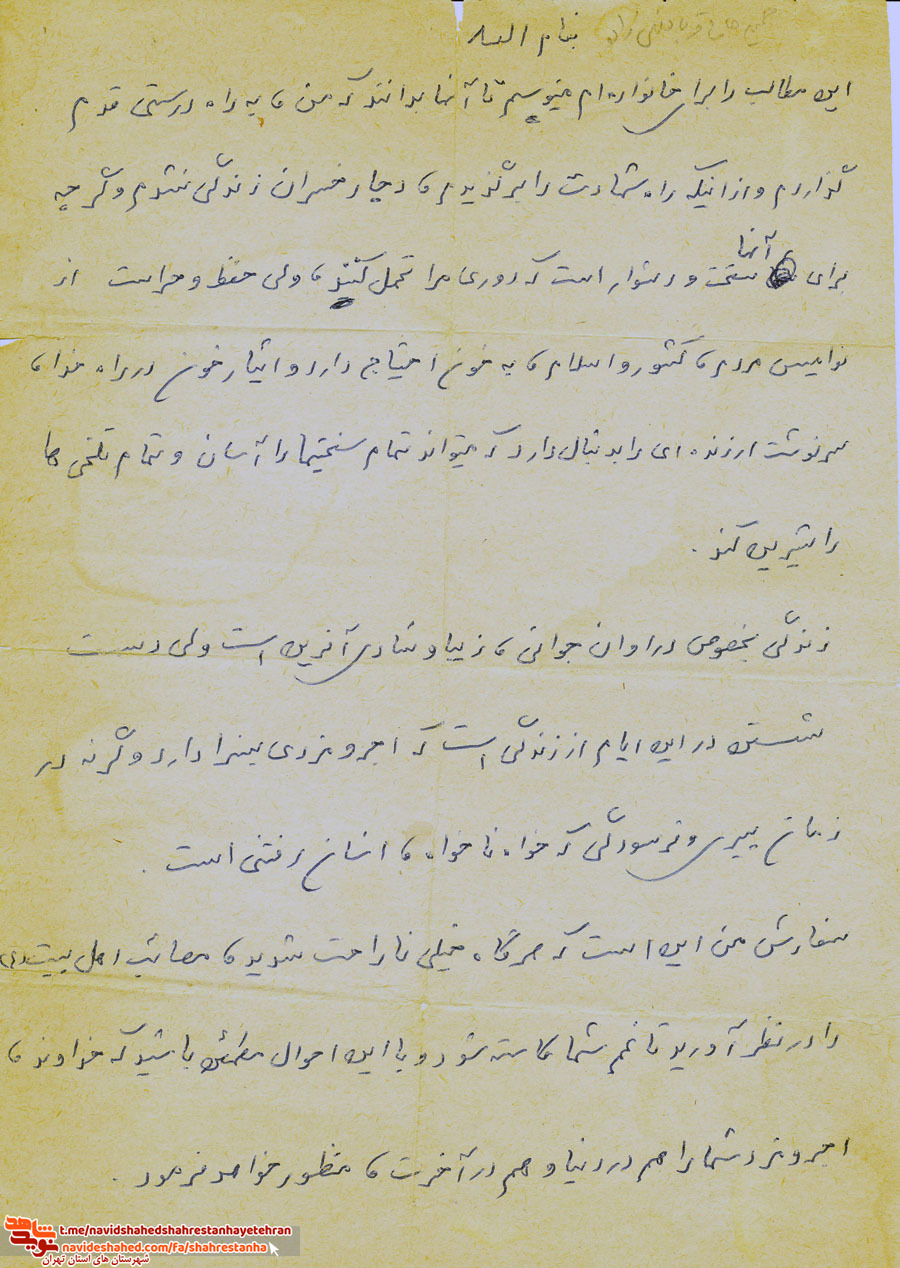 بنام الله
این مطالب را برای خانواده ام مینویسم تا آنها بدانند که من ، به راه درستی قدم
گذاردم و از اینکه راه شهادت را برگزیدم ، دچار خسران زندگی نشدم وگرچه
برای آنها سخت و دشوار است که دوری مرا تحمل کنند ، ولی حفظ و حراست از
نوامیس مردم ، کشور و اسلام ، به خون احتیاج دارد و ایثار خون در راه خدا ،
سرنوشت ارزنده ای را بدنبال دارد که میتواند تمام سختیها را آسان و تمام تلخی ها
را شیرین کند .
زندگی بخصوص در اوان جوانی ، زیبا و شادی آفرین است ولی دست
شستن در این ایام از زندگی است که اجر و مزدی بسزا دارد وگرنه در
زمان پیری و فرسودگی که خواه ناخواه ، انسان رفتنی است .
سفارش من این است که هرگاه خیلی ناراحت شدید ، مصائب اهل بیت (ع)
را در نظر آورید تا غم شما کاسته شود و با این احوال مطمئن باشید که خداوند ،
اجر و مزد شما را هم در دنیا و هم در آخرت ، منظور خواهد فرمود .
شاهد
نوید
t.me/navidshahedshahrestanhayetehran
navideshahed.com/fa/shahrestanha
شهرستان های استان تهران